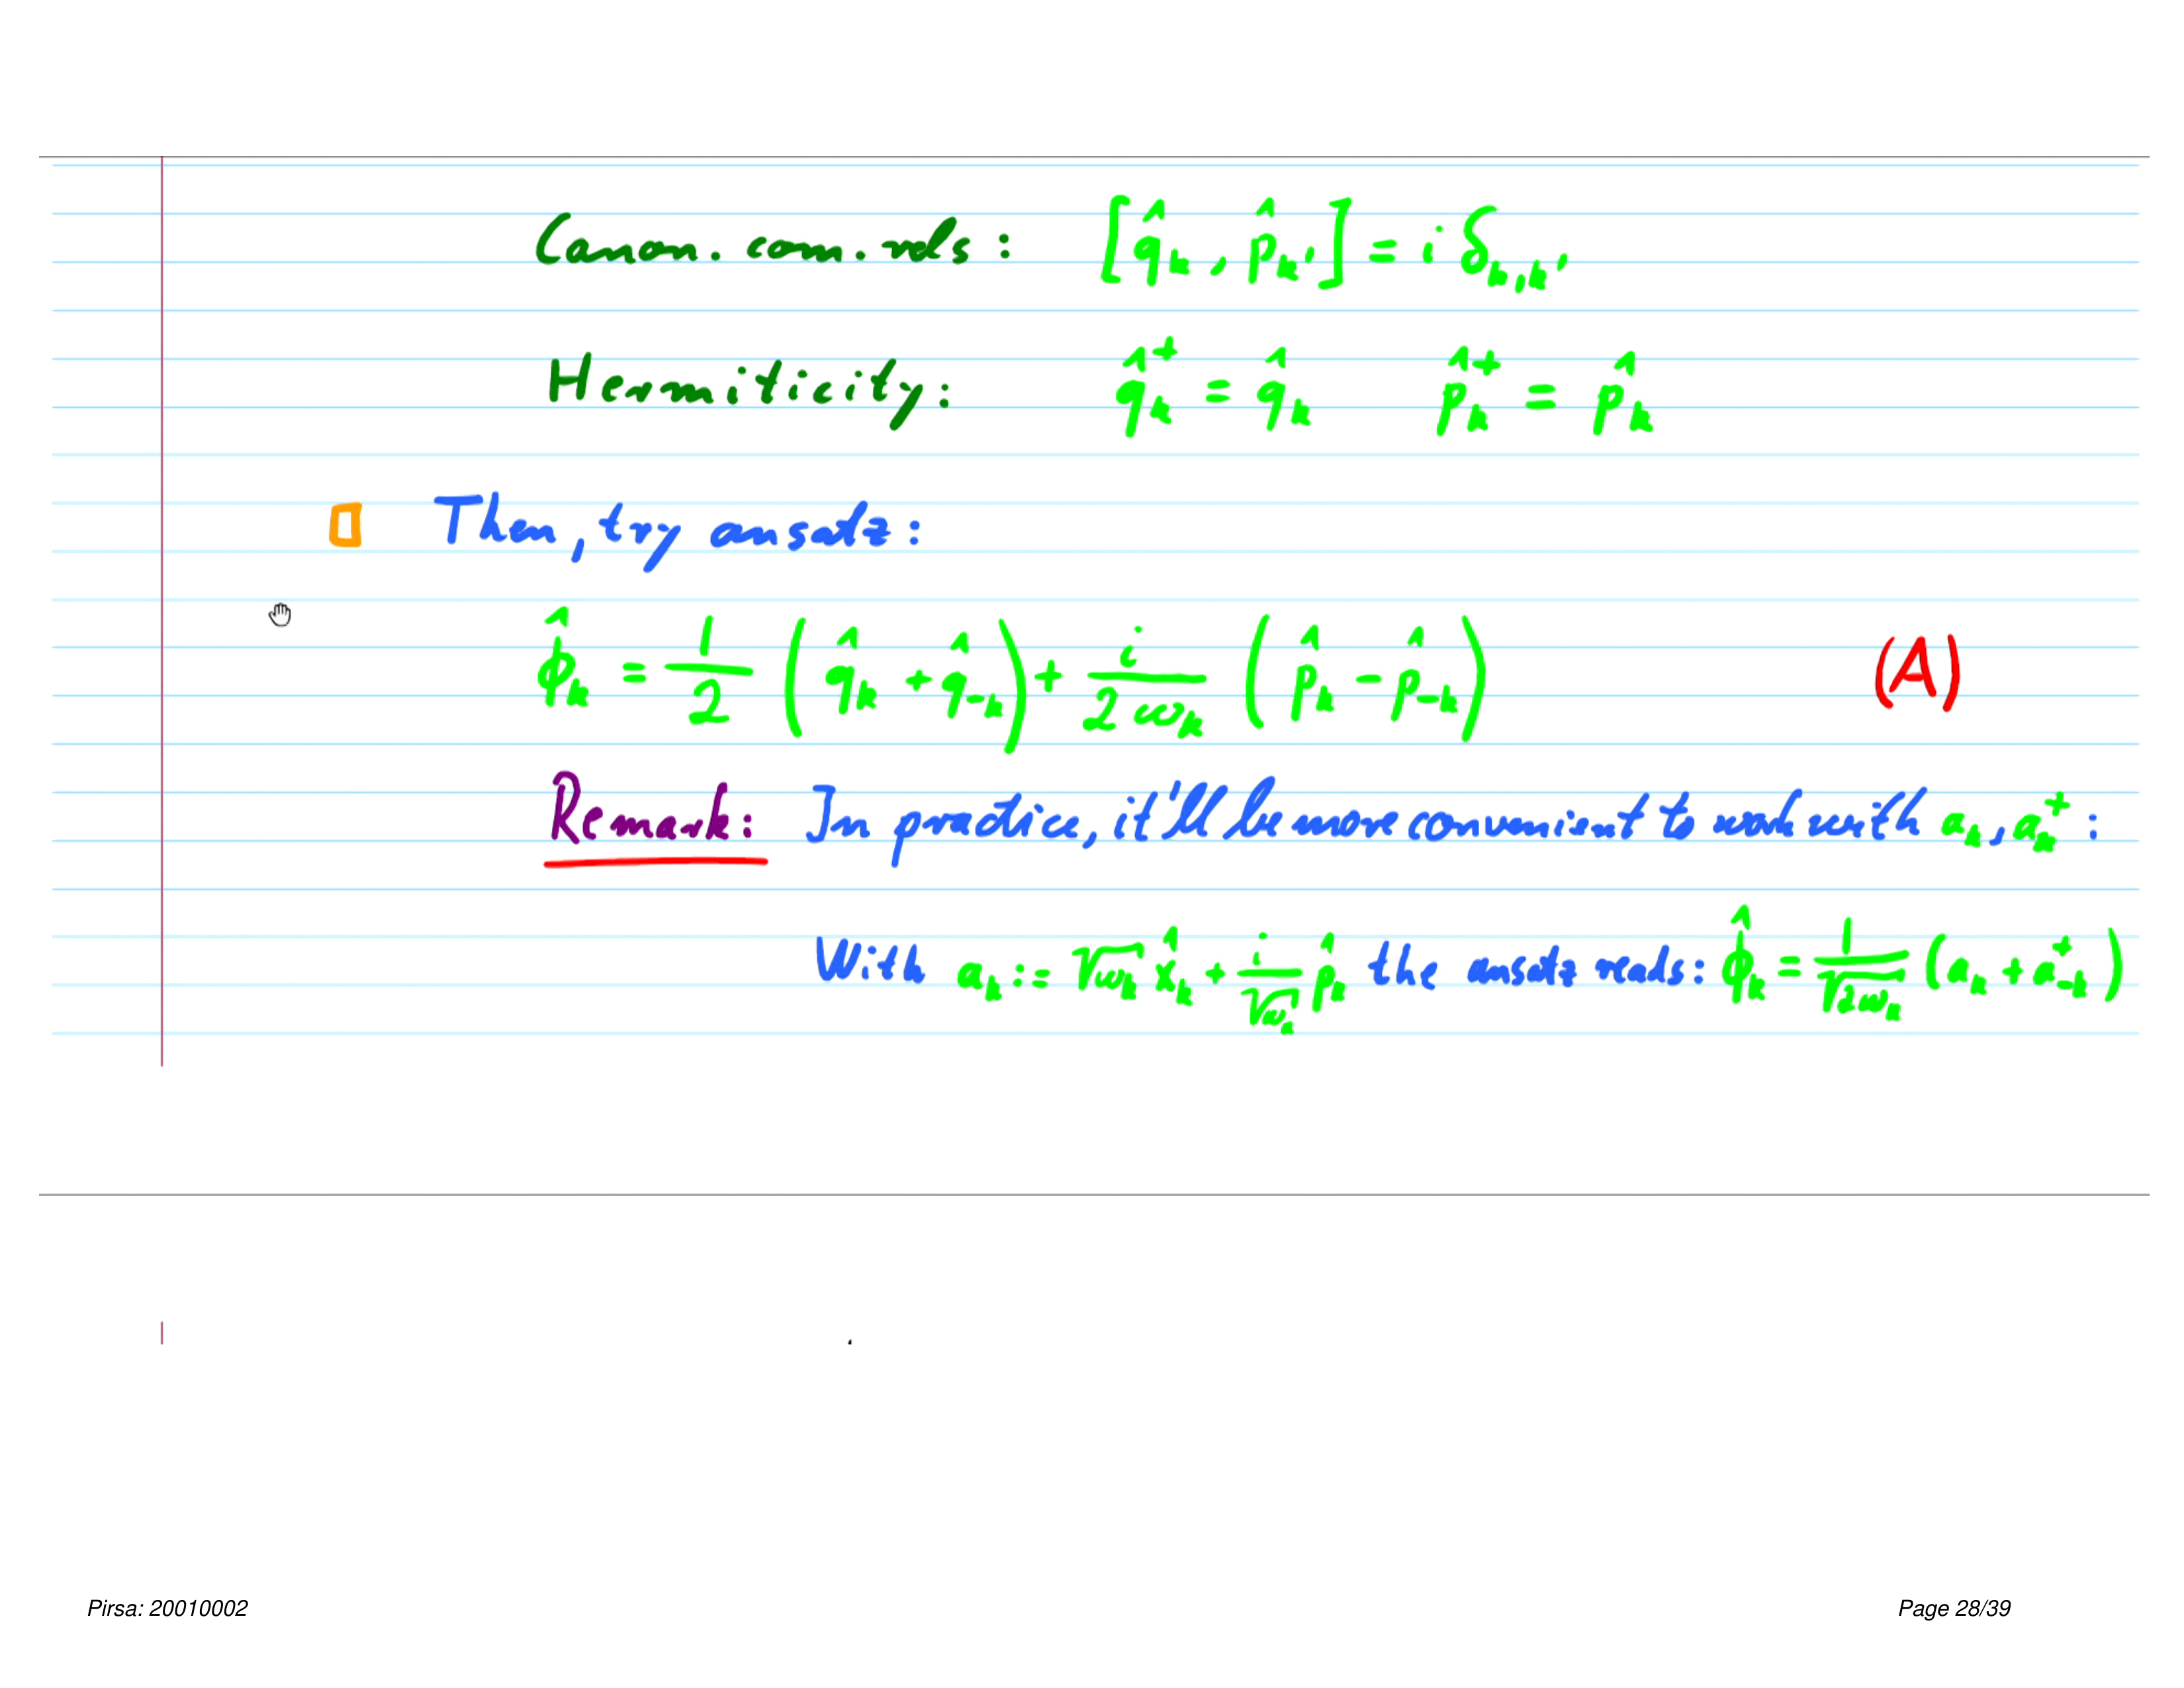 Canon. com. rels: [q̂ₖ, p̂ₖ'] = i δₖ,ₖ'
Hermiticity: q̂ₖ⁺ = q̂ₖ p̂ₖ⁺ = p̂ₖ
Then, try ansatz:
ϕ̂ₖ = 1/2 (q̂ₖ + q̂₋ₖ) + i/(2ωₖ) (p̂ₖ - p̂₋ₖ) (A)
Remark: In practice, it'll be more convenient to work with aₖ, aₖ⁺:
With aₖ := √ωₖ x̂ₖ + i/√ωₖ p̂ₖ the ansatz reads: ϕ̂ₖ = 1/√2ωₖ (aₖ + a₋ₖ⁺)
Pirsa: 20010002
Page 28/39